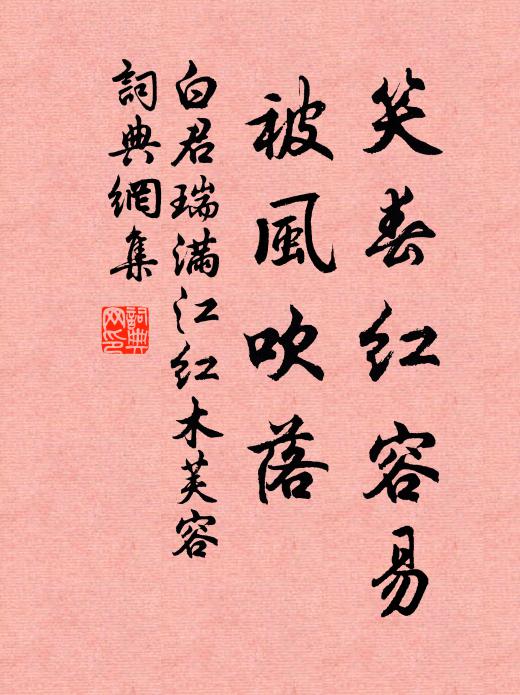 笑春红容易
被風吹落
白君瑞满江红木芙容
詞典網集
詞典网印